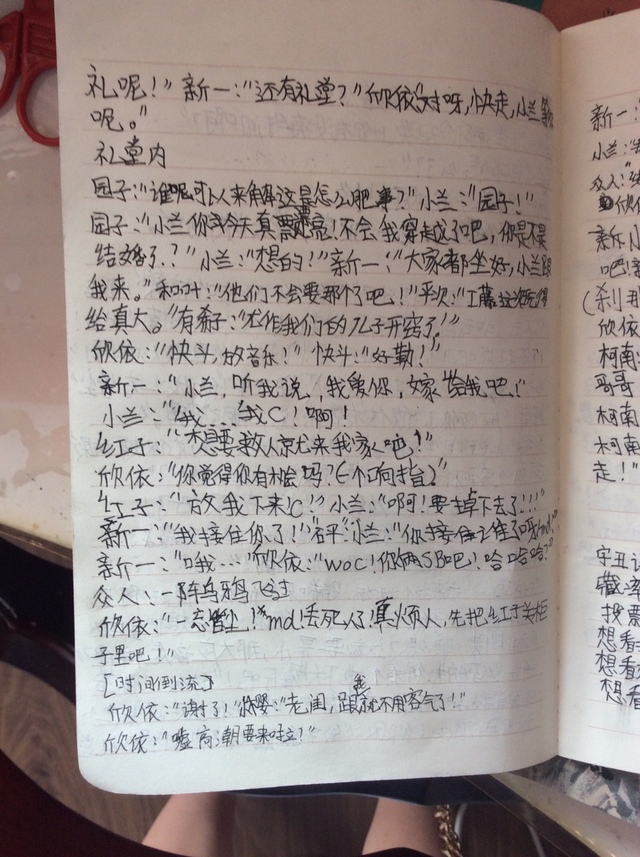 礼呢！"新一："还有礼堂？"欣依"对呀，快走，小兰等你
呢。"
礼堂内
园子："谁呢可以人来解释这是怎么吧事？"小兰："园子！"
园子："小兰你今天真漂亮！不会我穿越了吧，你是不是
结婚了？"小兰："想的！"新一："大家都坐好，小兰跟
我来。"和叶："他们不会要那个了吧！"平次："工藤这次
给真大。"有希子："优作我们的儿子开窍了！"
欣依："快斗，放音乐！"快斗："好勒！"
新一："小兰，听我说，我爱你，嫁给我吧！"
小兰："我……我C！啊！
红子："想要救人京尤来我家吧！"
欣依："你觉得你有机会吗？（个响指）"
红子："放我下来C！"小兰："啊！要掉下去了！！！"
新一："我接住你了！"小兰："你接住谁了呀
新一："哦…"欣依："woc！你俩SB吧！哈哈哈哈？"
众人：一阵乌鸦飞过
欣依："一态 md！丢死人了！真烦人，先把红子关柜
子里吧！"
[时间倒流]
欣依："谢了！""老闺，跟我就不用客气了！"
欣依："嘘高潮要来啦！"
新一：
小兰：
众人：
欣依
新小
吧！
欣依
柯南
哥哥
柯南
柯南
走！"
找
想看
想看
想看